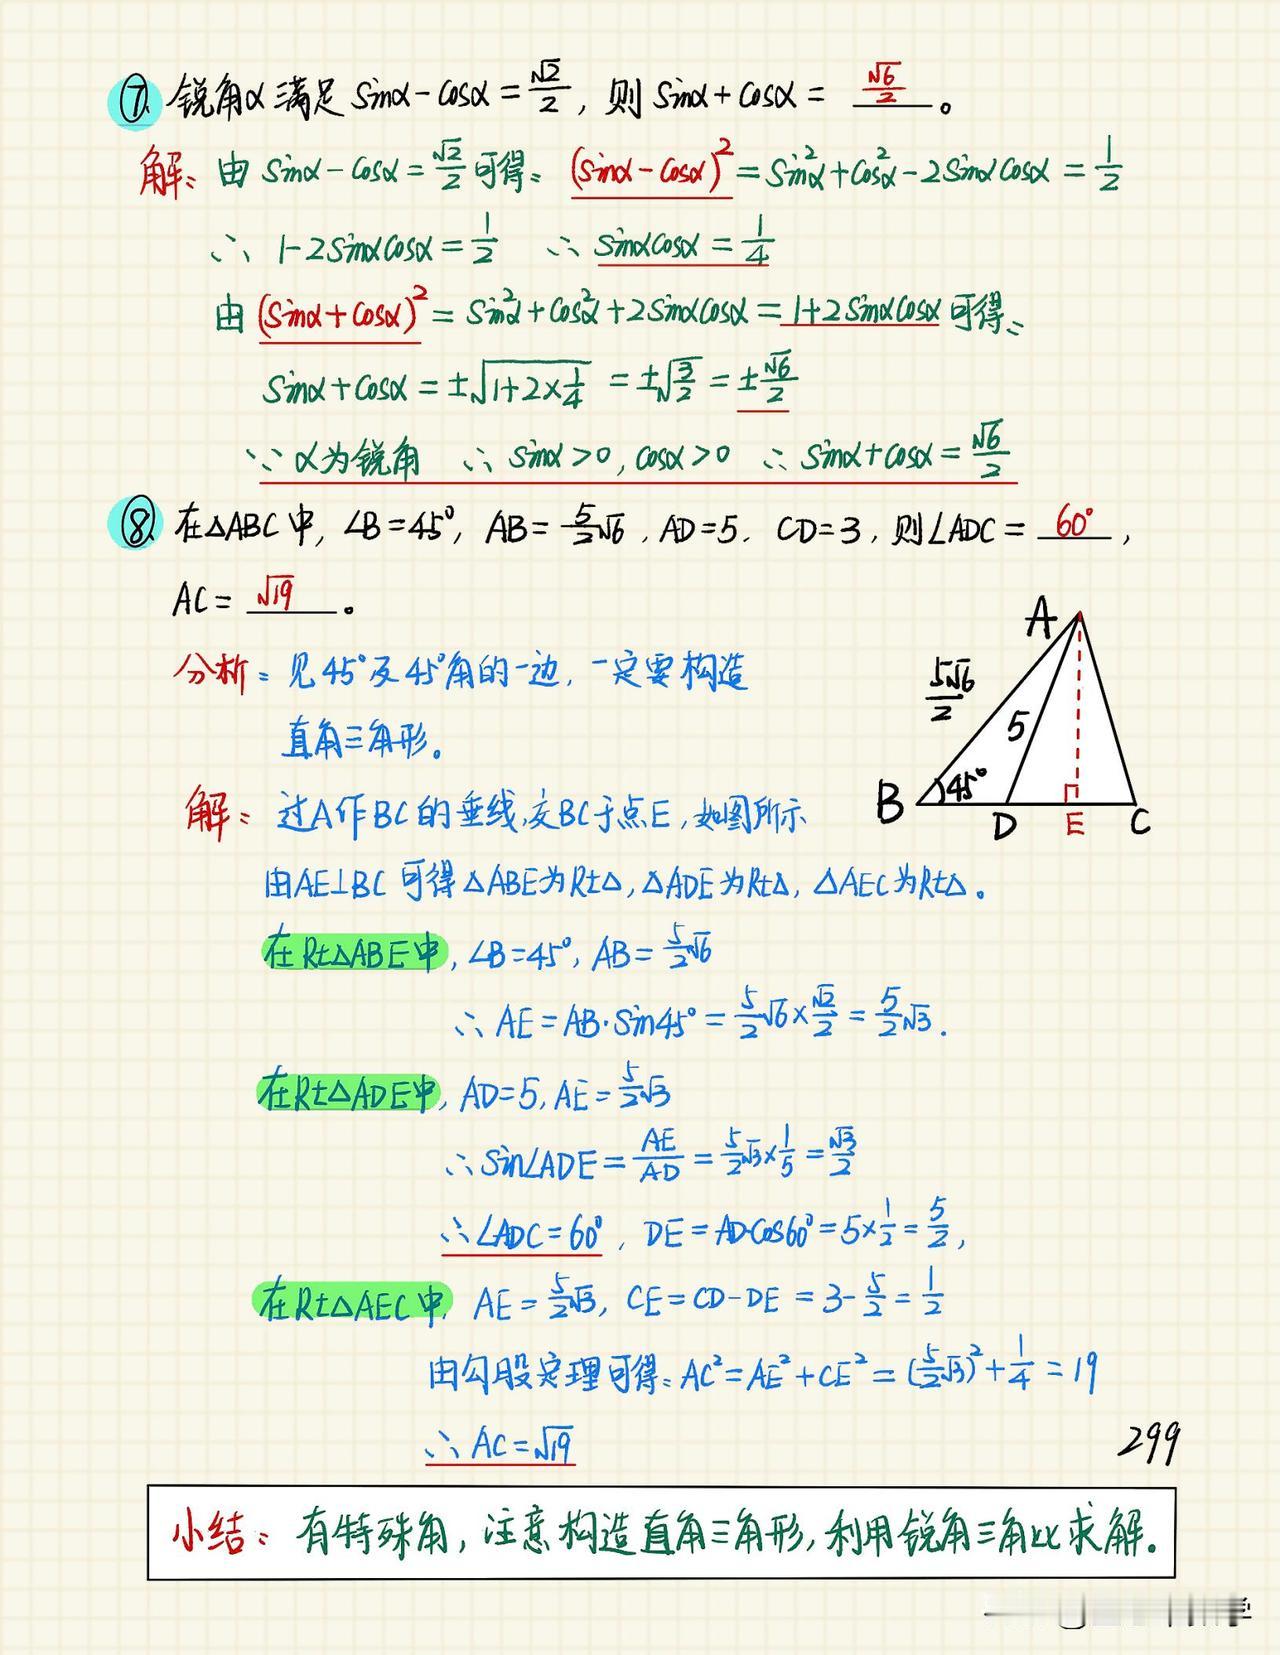 ⑦ 锐角α满足 sinα-cosα=√2/2, 则 sinα+cosα= √6/2 。
解: 由 sinα-cosα=√2/2 可得: (sinα-cosα)²=sin²α+cos²α-2sinαcosα=1/2
∴ 1-2sinαcosα=1/2 ∴ sinαcosα=1/4
由 (sinα+cosα)²=sin²α+cos²α+2sinαcosα=1+2sinαcosα 可得:
sinα+cosα=±√(1+2×1/4)=±√(3/2)=±√6/2
∵ α为锐角 ∴ sinα>0, cosα>0 ∴ sinα+cosα=√6/2
⑧ 在△ABC中, ∠B=45°, AB=5/2√6, AD=5, CD=3, 则∠ADC= 60° ,
AC= √19 。
分析: 见45°及45°角的一边, 一定要构造
直角三角形。
A
5√6/2
5
45°
B D E C
解: 过A作BC的垂线,交BC于点E, 如图所示
由AE⊥BC 可得△ABE为Rt△, △ADE为Rt△, △AEC为Rt△。
在Rt△ABE中, ∠B=45°, AB=5/2√6
∴ AE=AB·sin45°=5/2√6×√2/2=5/2√3.
在Rt△ADE中, AD=5, AE=5/2√3
∴ sin∠ADE=AE/AD=5/2√3×1/5=√3/2
∴∠ADC=60°, DE=AD·cos60°=5×1/2=5/2,
在Rt△AEC中, AE=5/2√3, CE=CD-DE=3-5/2=1/2
由勾股定理可得: AC²=AE²+CE²=(5/2√3)²+1/4=19
∴ AC=√19
299
小结: 有特殊角, 注意构造直角三角形, 利用锐角三角比求解.